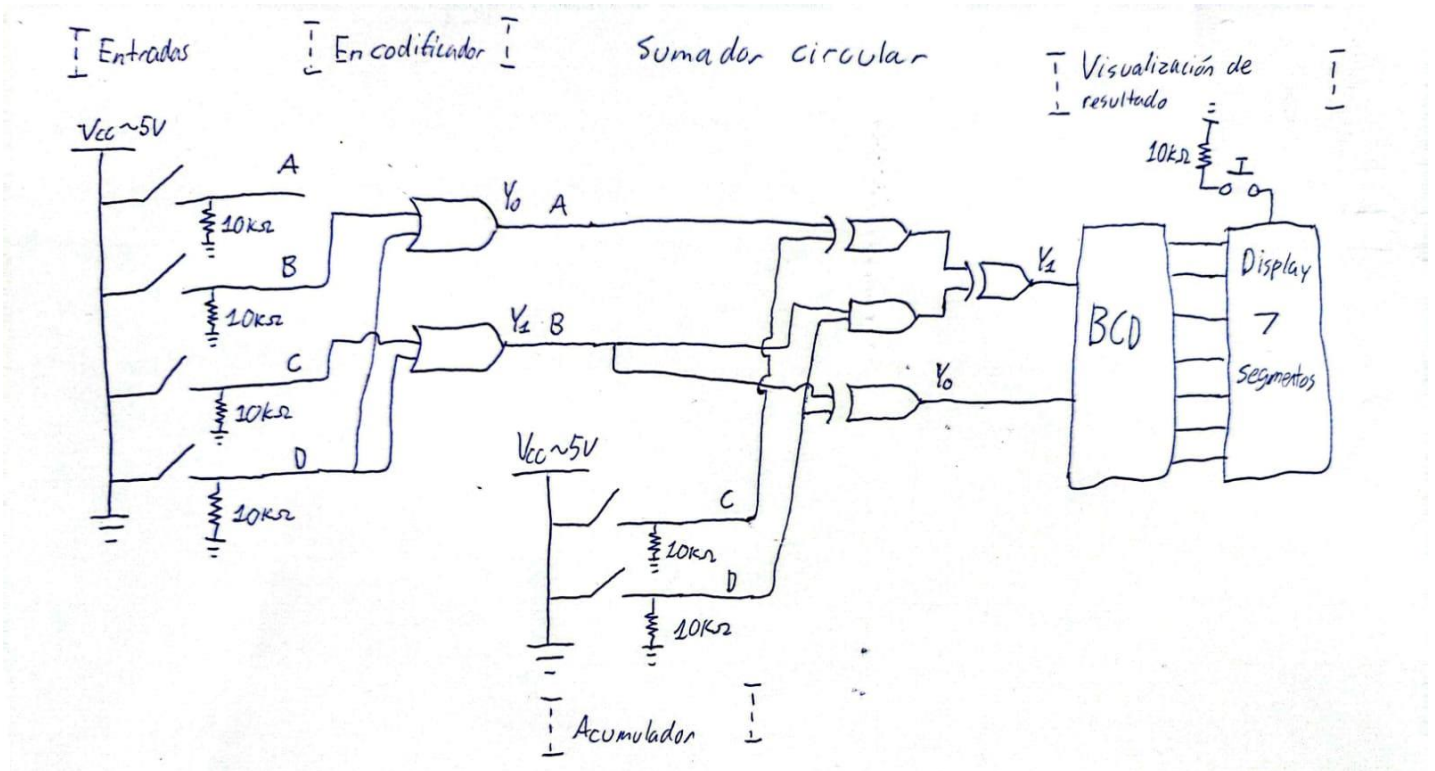 Entradas
Encodificador
Sumador circular
Visualización de
resultado
Vcc~5V
A
10kΩ
B
10kΩ
C
10kΩ
D
10kΩ
Y₀ A
Y₁ B
Vcc~5V
C
10kΩ
D
10kΩ
Acumulador
Y₁
Y₀
BCD
10kΩ
I
Display
7
segmentos